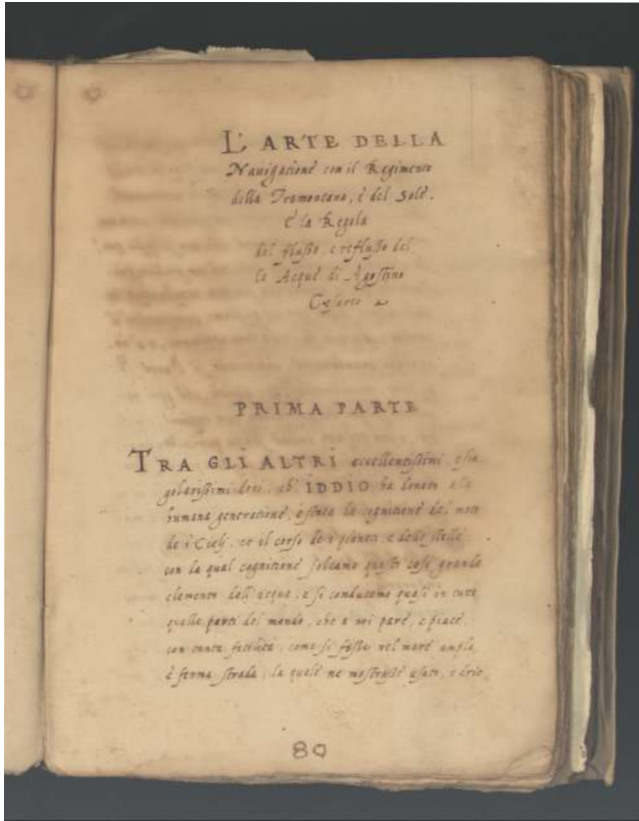 L' ARTE DELLA
Nauigatione con il Regimento
della Tramontana, è del Sole.
E la Regola
del flusso, e reflusso del
le Acque di Agostino
Cesareo
PRIMA PARTE
TRA GLI ALTRI eccellentissimi, e sin
golarissimi doni, ch' IDDIO ha donato ala
humana generatione, è stata la cognitione del moto
de i Cieli, et il corso de i pianeti, e delle stelle
con la qual cognitione solcamo questo cosi grande
elemento dell' acqua, e si conducemo quasi in tutte
quelle parti del mondo, che a noi pare, e piace
con tanta facilità, come si fosse nel mare ampla,
è ferma strada, la quale ne mostrasse usato, e
80